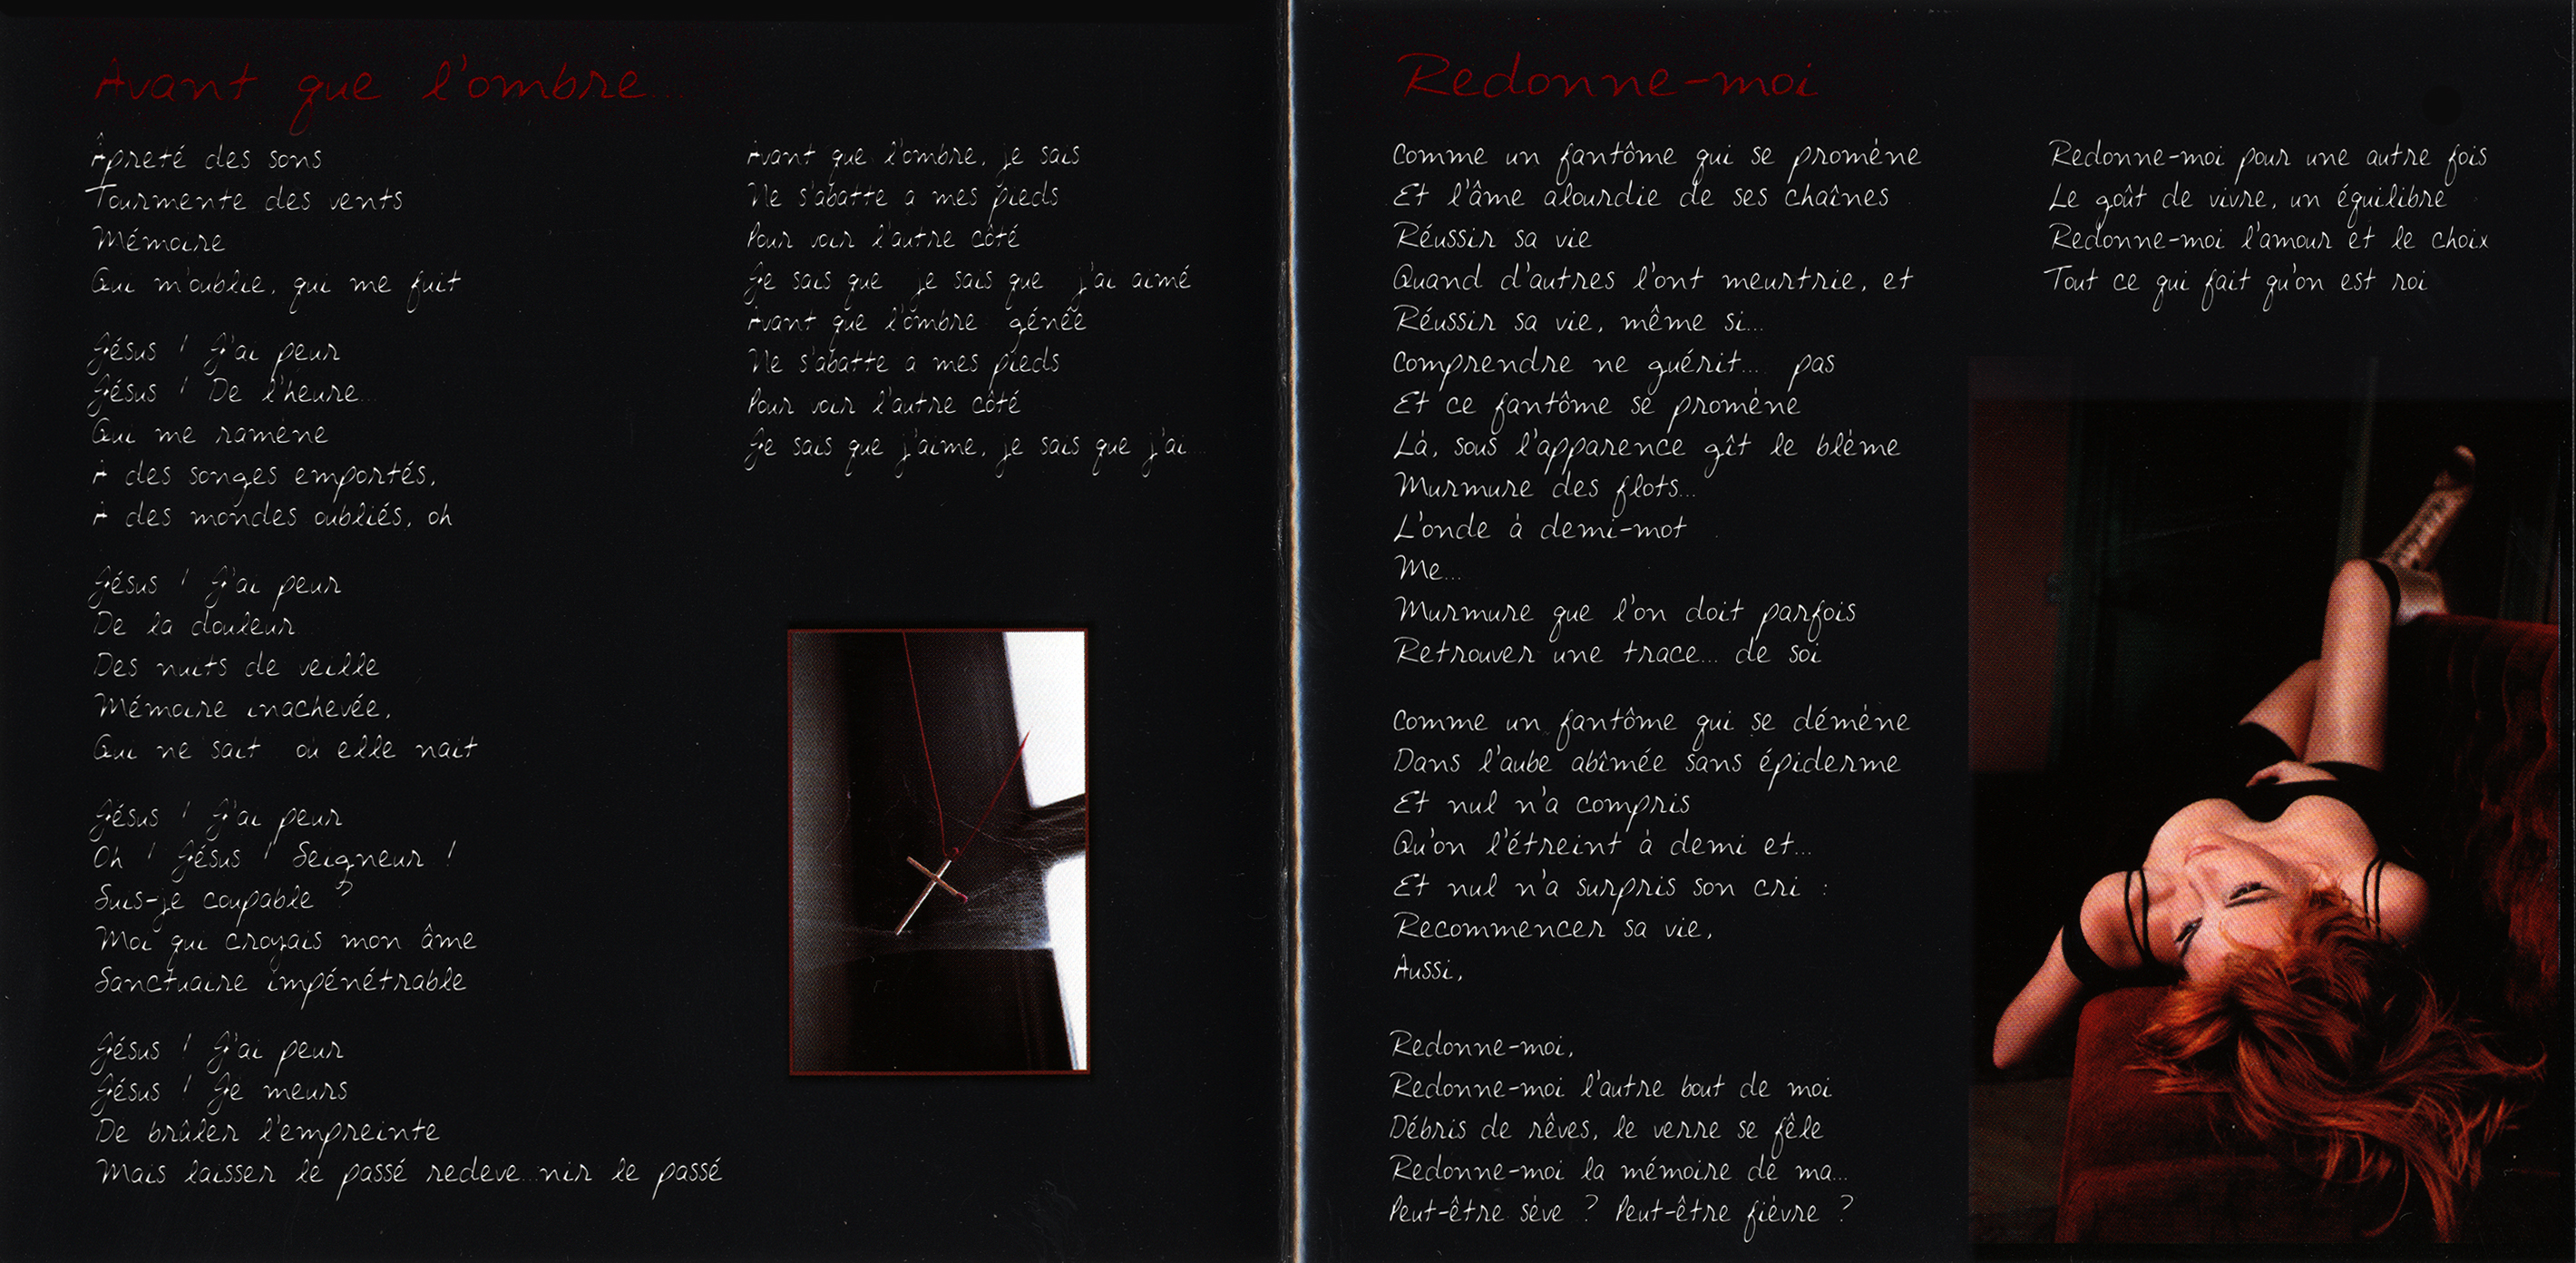 Avant que l'ombre...
Âpreté des sons
Tourmente des vents
Mémoire
Qui m'oublie, qui me fuit
Jésus ! J'ai peur
Jésus ! De l'heure...
Qui me ramène
À des songes emportés,
À des mondes oubliés, oh
Jésus ! J'ai peur
De la douleur
Des nuits de veille
Mémoire inachevée,
Qui ne sait où elle nait
Jésus ! J'ai peur
Oh ! Jésus ! Seigneur !
Suis-je coupable ?
Moi qui croyais mon âme
Sanctuaire impénétrable
Jésus ! J'ai peur
Jésus ! Je meurs
De brûler l'empreinte
Mais laisser le passé redeve...nir le passé
Avant que l'ombre, je sais
Ne s'abatte a mes pieds
Pour voir l'autre côté
Je sais que je sais que j'ai aimé
Avant que l'ombre gênée
Ne s'abatte a mes pieds
Pour voir l'autre côté
Je sais que j'aime, je sais que j'ai...
Redonne-moi
Comme un fantôme qui se promène
Et l'âme alourdie de ses chaînes
Réussir sa vie
Quand d'autres l'ont meurtrie, et
Réussir sa vie, même si...
Comprendre ne guérit... pas
Et ce fantôme se promène
Là, sous l'apparence gît le blème
Murmure des flots...
L'onde à demi-mot
Me...
Murmure que l'on doit parfois
Retrouver une trace... de soi
Comme un fantôme qui se démène
Dans l'aube abîmée sans épiderme
Et nul n'a compris
Qu'on l'étreint à demi et...
Et nul n'a surpris son cri :
Recommencer sa vie,
Aussi,
Redonne-moi,
Redonne-moi l'autre bout de moi
Débris de rêves, le verre se fêle
Redonne-moi la mémoire de ma...
Peut-être sève ? Peut-être fièvre ?
Redonne-moi pour une autre fois
Le goût de vivre, un équilibre
Redonne-moi l'amour et le choix
Tout ce qui fait qu'on est roi